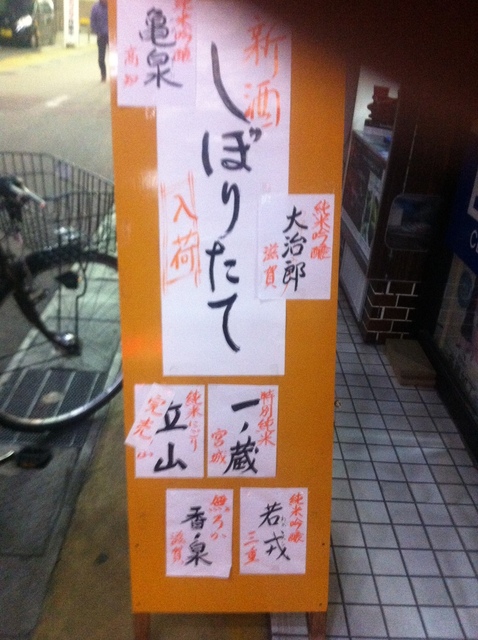 純米吟醸
亀泉
高知
新酒
しぼりたて
入荷
純米吟醸
大治郎
滋賀
特別純米
一ノ蔵
宮城
純米にごり
立山
純米吟醸
若戎
三重
無ろか
香の泉
滋賀